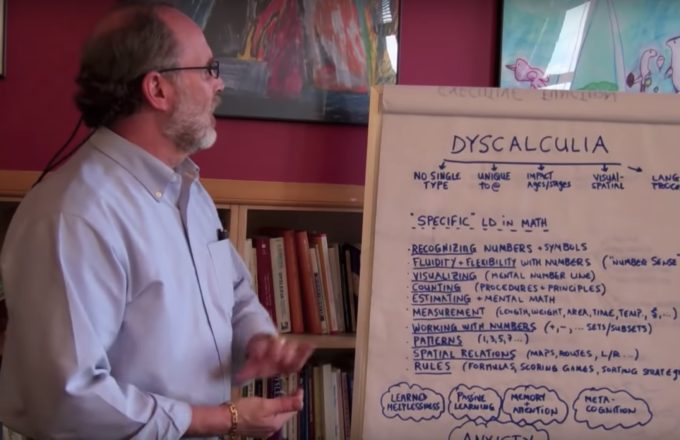 EXECUTIVE FUNCTION
DYSCALCULIA
NO SINGLE TYPE
UNIQUE TO @
IMPACT AGES/STAGES
VISUAL-SPATIAL
LANG
"SPECIFIC" LD IN MATH
· RECOGNIZING NUMBERS + SYMBOLS
· FLUIDITY + FLEXIBILITY WITH NUMBERS ("NUMBER SENSE"
· VISUALIZING (MENTAL NUMBER LINE)
· COUNTING (PROCEDURES + PRINCIPLES)
· ESTIMATING + MENTAL MATH
· MEASUREMENT (LENGTH, WEIGHT, AREA, TIME, TEMP., $, ...)
· WORKING WITH NUMBERS (+, -, ... SETS/SUBSETS)
· PATTERNS (1, 3, 5, ? ...)
· SPATIAL RELATIONS (MAPS, ROUTES, L/R ...)
· RULES (FORMULAS, SCORING GAMES, SORTING STRATEG
LEARNED HELPLESSNESS
PASSIVE LEARNING
MEMORY + ATTENTION
META-COGNITION
ANXIETY